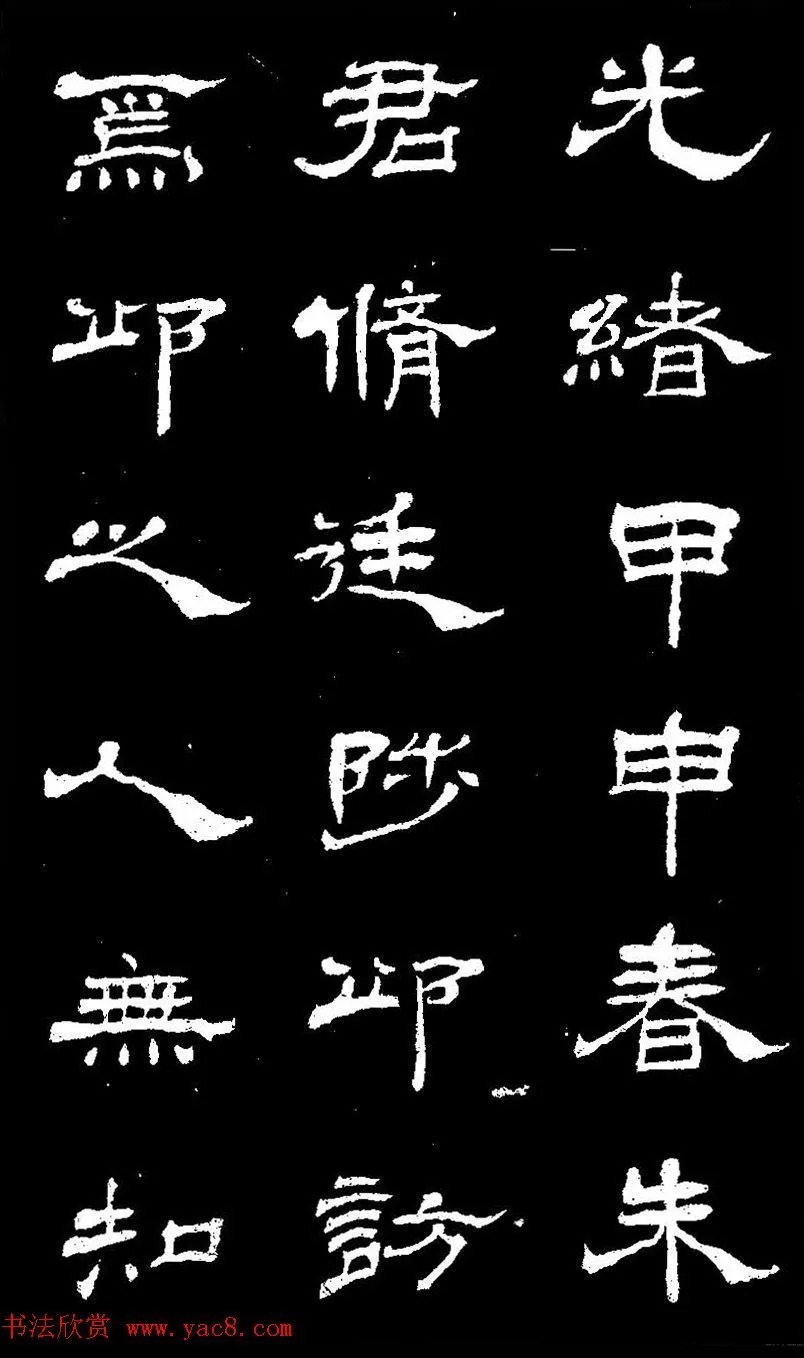 光緒甲申春朱
君脩廷陟邱訪
焉邱之人無知
书法欣赏 www.yac8.com